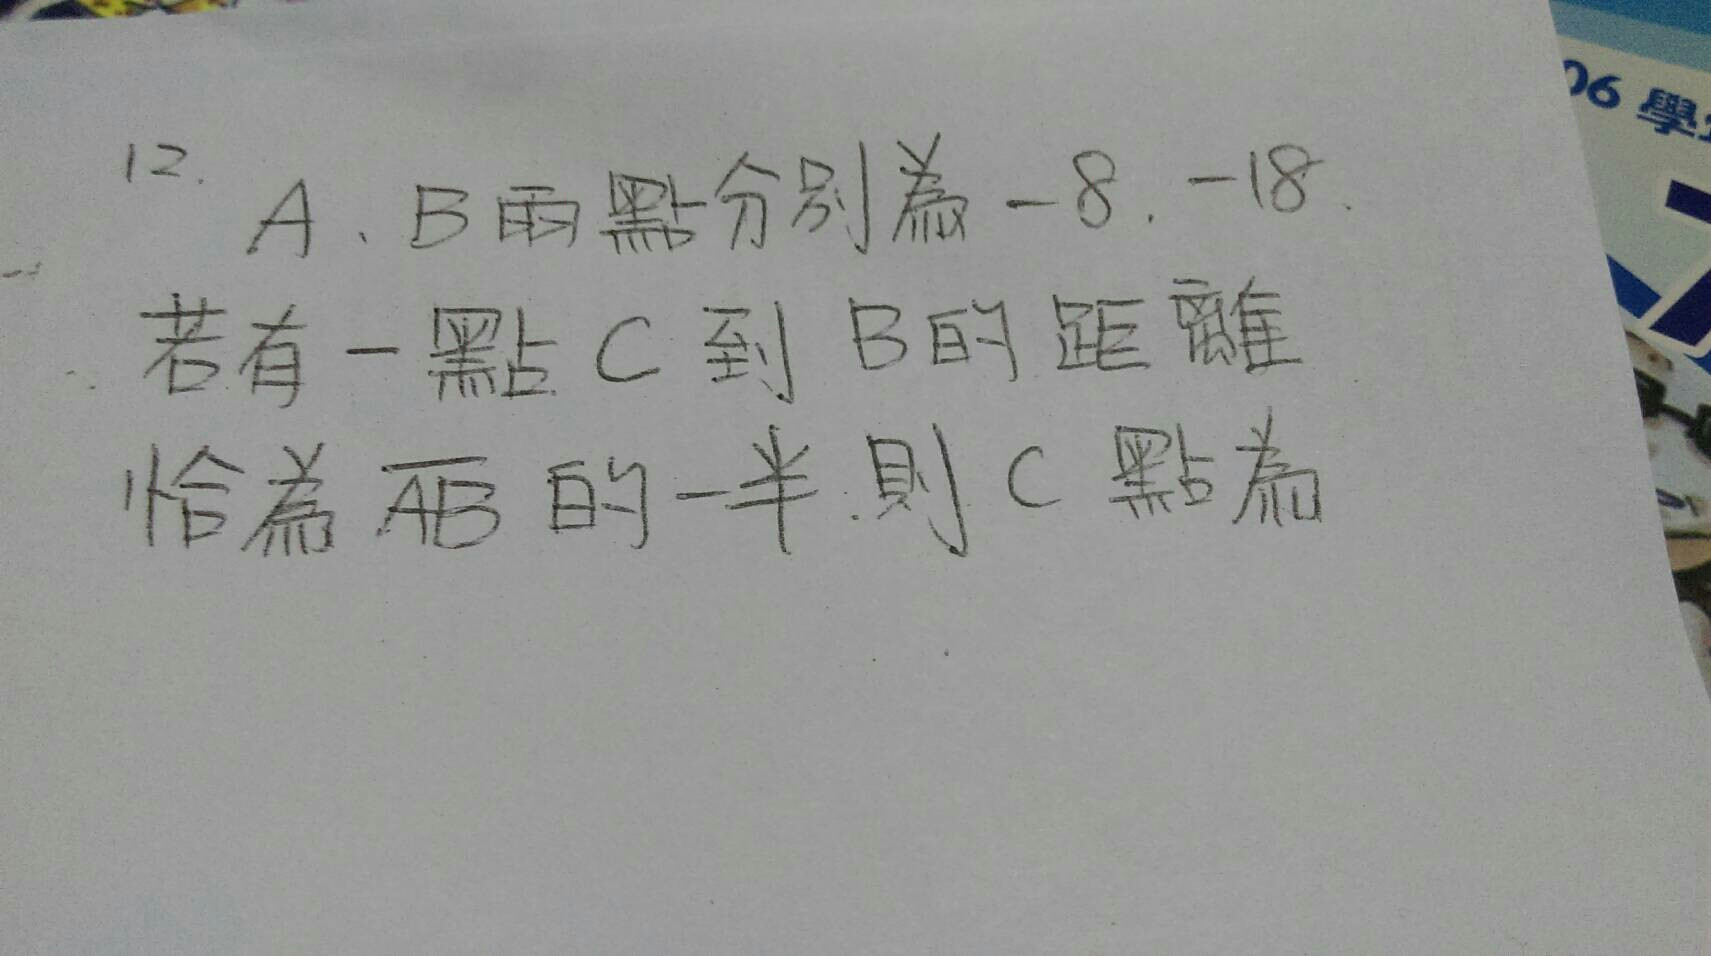 12.
A、B兩點分別為-8、-18.
若有一點C到B的距離
恰為AB的一半.則C點為
06 學